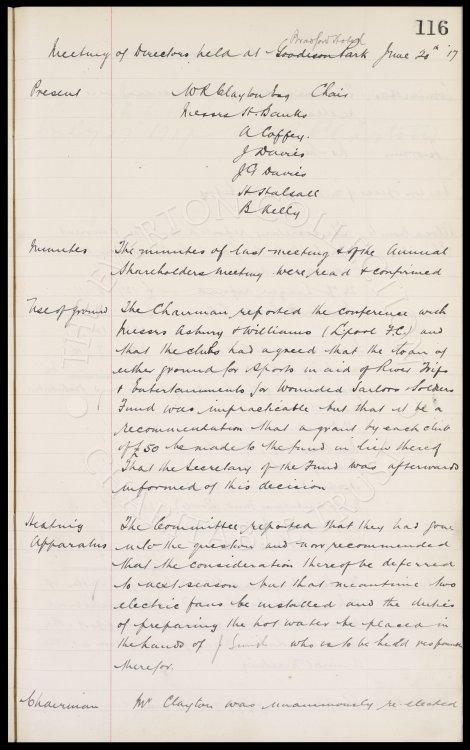 116
Bradford Hotel
Meeting of Directors held at Goodison Park June 20th '17
Present W R Clayton Esq Chair
Messrs H. Banks
A Coffey.
J Davies
J G Davies
H Halsall
B Kelly
Minutes The minutes of last meeting & of the Annual
Shareholders meeting were read & confirmed
Use of Ground The Chairman reported the conference with
Messrs Asbury & Williams (L'pool F.C.) and
that the clubs had agreed that the loan of
either ground for Sports in aid of River Trips
& Entertainments for Wounded Sailors & Soldiers
Fund was impracticable but that it be a
recommendation that a grant by each club
of £50 be made to the fund in lieu thereof
That the Secretary of the Fund was afterwards
informed of this decision
Heating The Committee reported that they had gone
Apparatus into the question and now recommended
that the consideration thereof be deferred
to next season but that meantime two
electric fans be installed and the duties
of preparing the hot water be placed in
the hands of J Smith who is to be held responsible
therefor.
Chairman Mr Clayton was unanimously re-elected